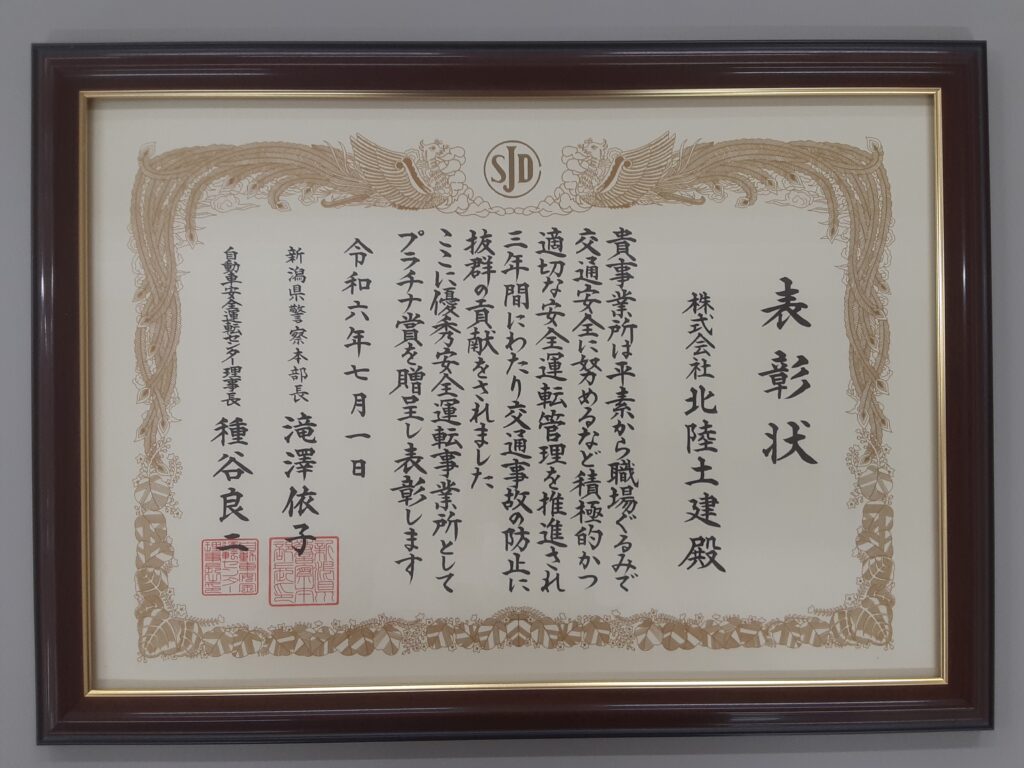 SJD
表彰状
株式会社北陸土建殿
貴事業所は平素から職場ぐるみで
交通安全に努めるなど積極的かつ
適切な安全運転管理を推進され
三年間にわたり交通事故の防止に
抜群の貢献をされました
ここに優秀安全運転事業所として
プラチナ賞を贈呈し表彰します
令和六年七月一日
新潟県警察本部長 滝澤依子
自動車安全運転センター理事長 種谷良二